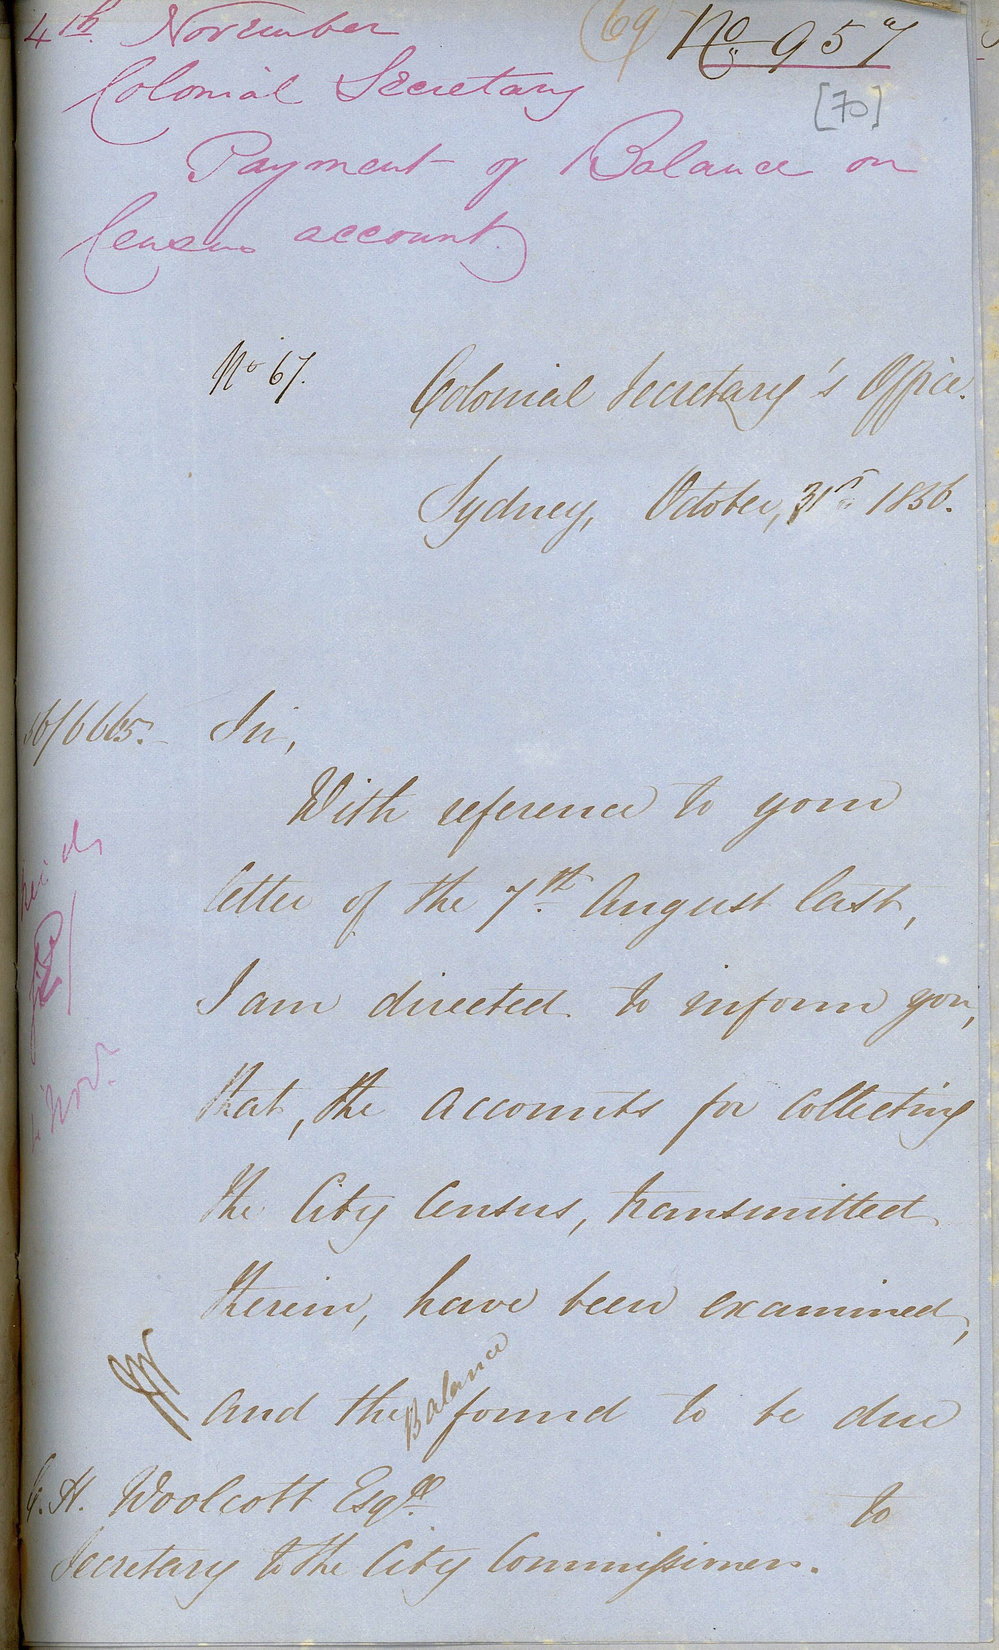 4th. November
(69) No 957
Colonial Secretary
[70]
Payment of Balance on
Census account
No 67.
Colonial Secretary's Office.
Sydney, October, 31st 1856.
56/6665.
Sir,
With reference to your
letter of the 7th. August last,
I am directed to inform you,
that, the accounts for collecting
the City Census, transmitted
therein, have been examined,
and the Balance found to be due
to
C. H. Woolcott Esqre.
Secretary to the City Commissioners.
Nov.